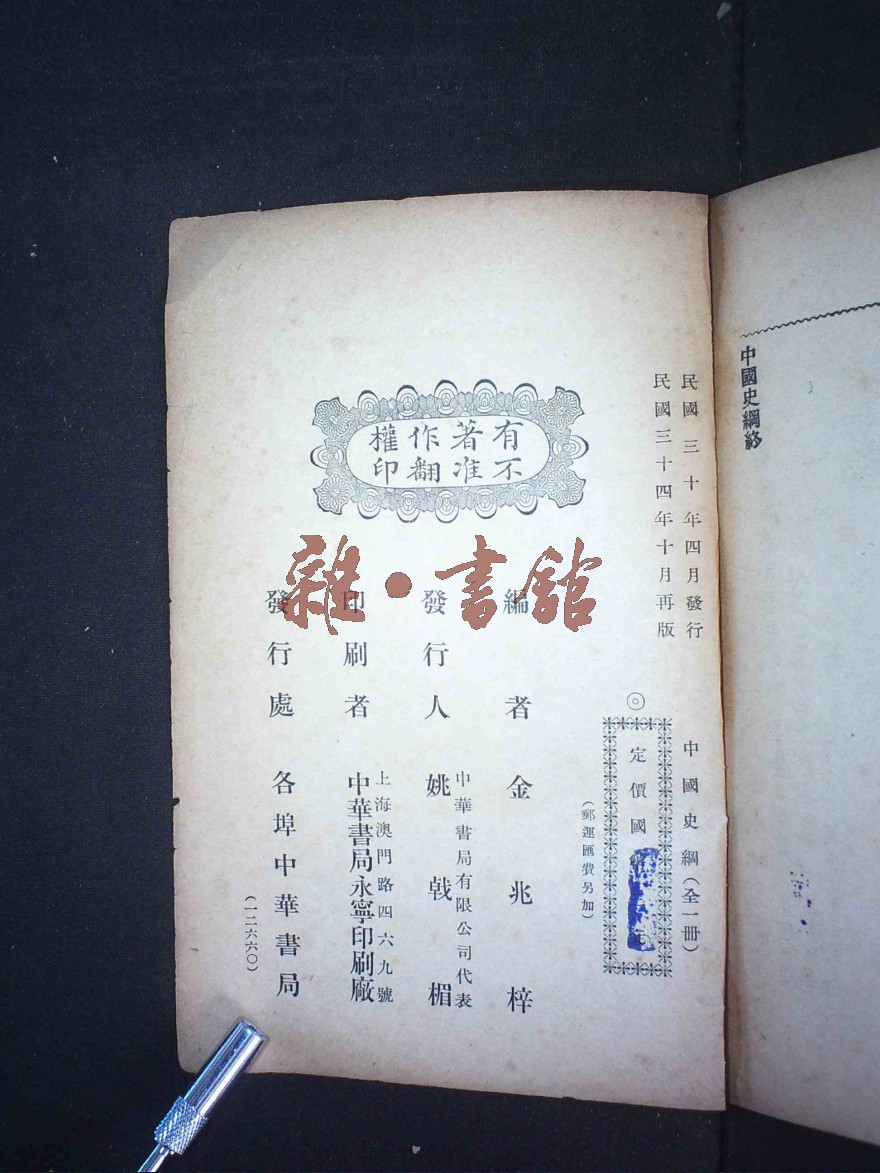 中國史綱終
民國三十年四月發行
民國三十四年十月再版
中國史綱(全一冊)
◎
定價國
(郵運匯費另加)
有著作權
不准翻印
編者 金兆梓
發行人 姚戟楣
中華書局有限公司代表
印刷者 中華書局永寧印刷廠
上海澳門路四六九號
發行處 各埠中華書局
(一二六六〇)
雜·書館